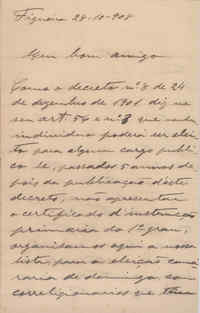 Figueira 28-10-908
Meu bom amigo
Como o decreto nº 8 de 24
de dezembro de 1901 diz no
seu artº 54 e nº 3 que nenhum
individuo poderá ser eleito
para algum cargo publico
se, passados 5 annos depois
da publicação d'este
decreto, não apresentar
o certificado d'instrucção
primaria do 1º grau,
organisamos aqui a nossa
lista, para a eleição camararia
de domingo, com
correligionarios que